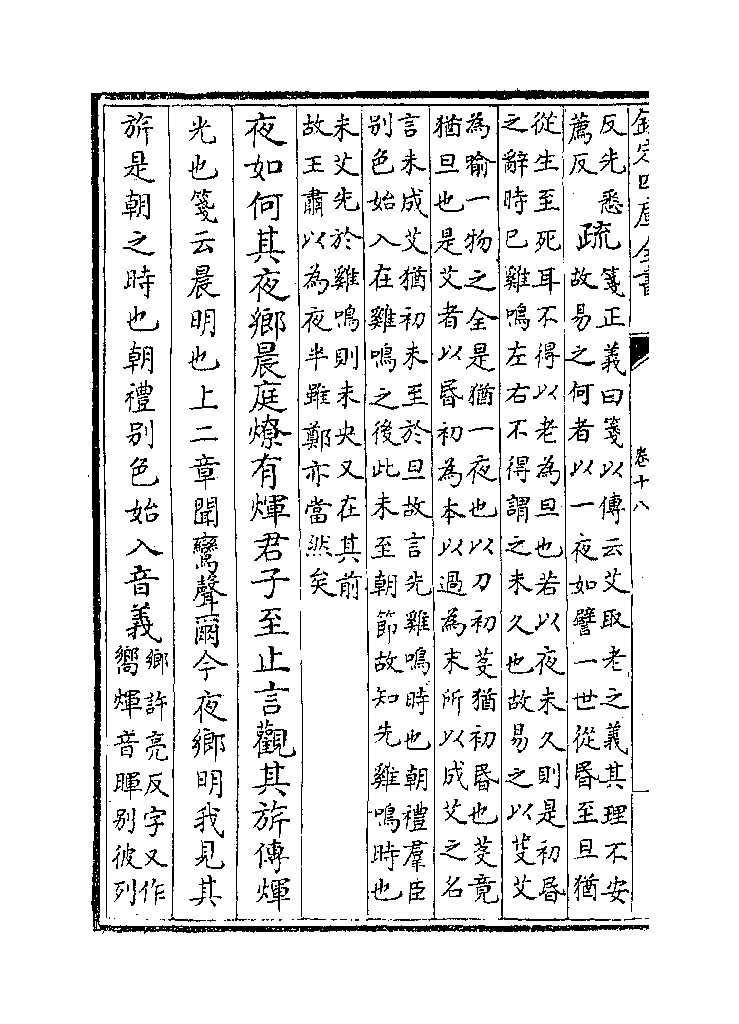 欽定四庫全書
卷十八
反先悉
薦反
疏
箋正義曰箋以傳云艾取老之義其理不安
故易之何者以一夜如譬一世從昬至旦猶
從生至死耳不得以老為旦也若以夜未久則是初昬
之辭時已雞鳴左右不得謂之未久也故易之以芟艾
為喻一物之全是猶一夜也以刀初芟猶初昬也芟竟
猶旦也是艾者以昬初為本以過為末所以成艾之名
言未成艾猶初未至於旦故言先雞鳴時也朝禮羣臣
别色始入在雞鳴之後此未至朝節故知先雞鳴時也
未艾先於雞鳴則未央又在其前
故王肅以為夜半雖鄭亦當然矣
夜如何其夜鄉晨庭燎有煇君子至止言觀其旂傳煇
光也箋云晨明也上二章聞鸞聲爾今夜鄉明我見其
旂是朝之時也朝禮别色始入音義
鄉許亮反字又作
嚮煇音暉别彼列